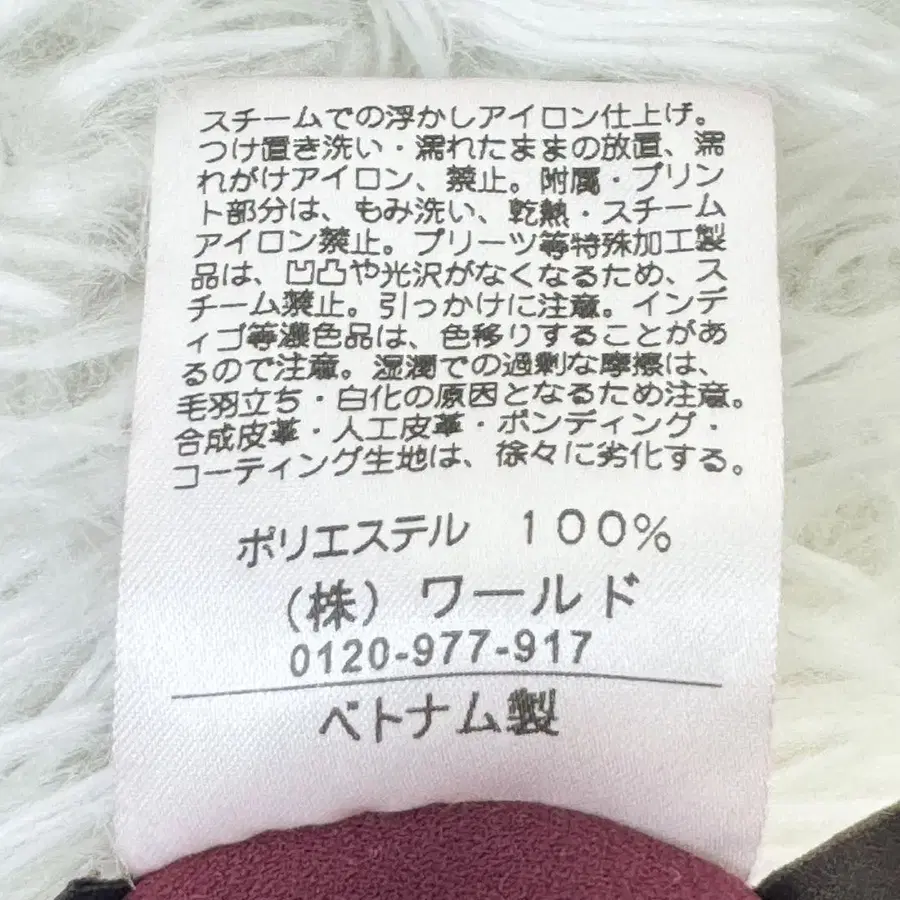 スチームでの浮かしアイロン仕上げ。
つけ置き洗い・濡れたままの放置、濡
れがけアイロン、禁止。附属・プリン
ト部分は、もみ洗い、乾熱・スチーム
アイロン禁止。プリーツ等特殊加工製
品は、凹凸や光沢がなくなるため、ス
チーム禁止。引っかけに注意。インデ
ィゴ等濃色品は、色移りすることがあ
るので注意。湿潤での過剰な摩擦は、
毛羽立ち・白化の原因となるため注意。
合成皮革・人工皮革・ボンディング・
コーティング生地は、徐々に劣化する。
ポリエステル 100%
(株) ワールド
0120-977-917
ベトナム製